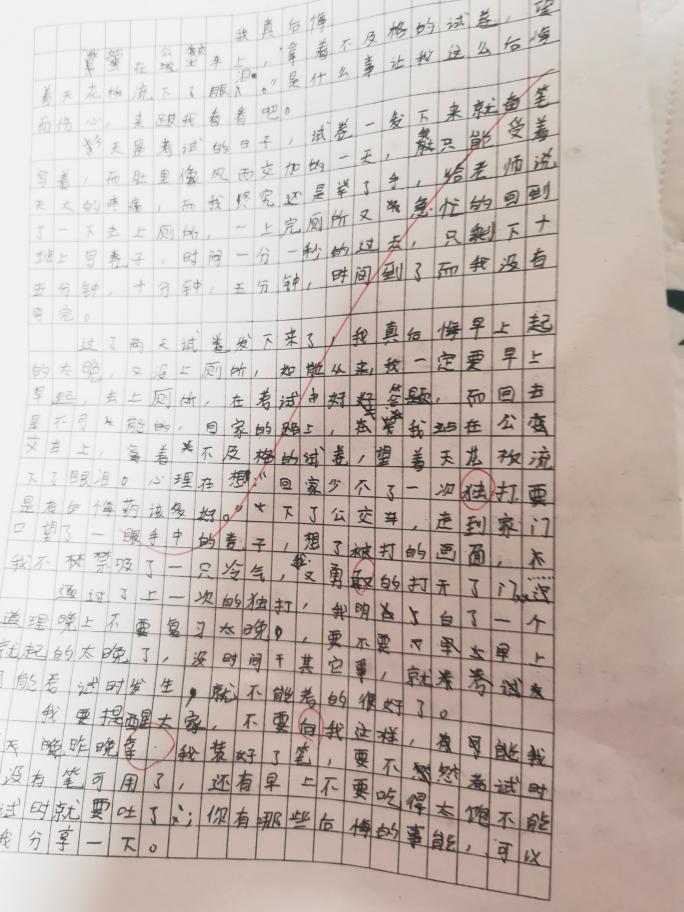 我真后悔
在公交车上，拿着不及格的试卷，望
着天花板流下了眼泪。"是什么事让我这么后悔
而伤心，来跟我看看吧。
今天是考试的日子，试卷一发下来就有笔
写着，而肚里像风雨交加的一天，我只能受着
天大的疼痛，而我终究还是举了手，给老师说
了一下去上厕所，一上完厕所又急忙的回到
地上写卷子，时间一分一秒的过去，只剩下十
五分钟，十分钟，五分钟，时间到了而我没有
写完。
过了两天试卷发下来了，我真后悔早上起
的太晚，又没上厕所，如能从来，我一定要早上
早起，去上厕所，在考试中好好答题，而回去
是不可能的，回家的路上，我站在公交
交车上，拿着不及格的试卷，望着天花板流
下了眼泪。心理在想："回家少不了一次独打要
是有后悔药该多好。"下了公交车，走到家门
口望了一眼手中的卷子，想了被打的画面，不
我不禁吸了一只冷气，又勇敢的打开了门
通过了上一次的独打，我明白了一个
道理晚上不要复习太晚，要不要早上
就起的太晚了，没时间干其它事，就来考试
可能考试时发生，就不能考的很好了。
我要提醒大家，不要向我这样，有可能我
天晚昨晚拿我装好了笔，要不然考试时
没有笔可用了，还有早上不要吃得太饱不能
试时就要吐了；你有哪些后悔的事能，可以
我分享一下。